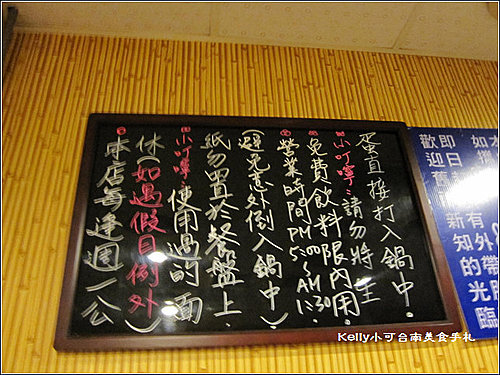 本店每逢週一公
休(如遇假日例外)
小叮嚀:使用過的面
紙勿置於餐盤上.
(避免意外倒入鍋中)
營業時間PM5:00~AM1:30
免費飲料限內用.
小叮嚀:請勿將生
蛋直接打入鍋中.
歡迎舊新知的光臨
即日有外帶
如本
Kelly小可台南美食手札